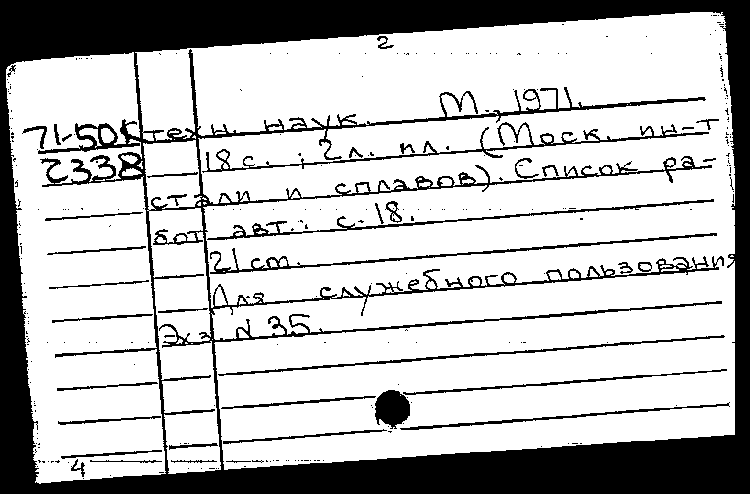 2
71-50К техн. наук. М., 1971.
2338 18 с. ; 2 л. ил. (Моск. ин-т
стали и сплавов). Список ра-
бот авт.: с. 18.
21 cm.
Для служебного пользования
Экз. N 35.
4